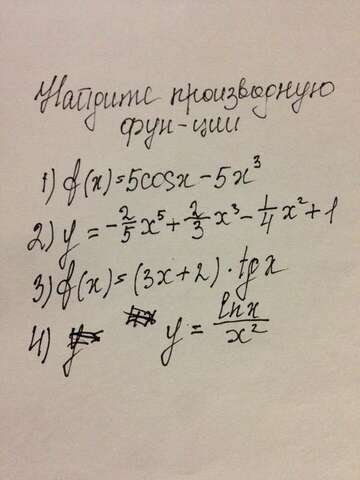 Найдите производную
фун-ции
1) f(x)=5cosx-5x³
2) y=-2/5x⁵+2/3x³-1/4x²+1
3) f(x)=(3x+2)·tgx
4) y=lnx/x²